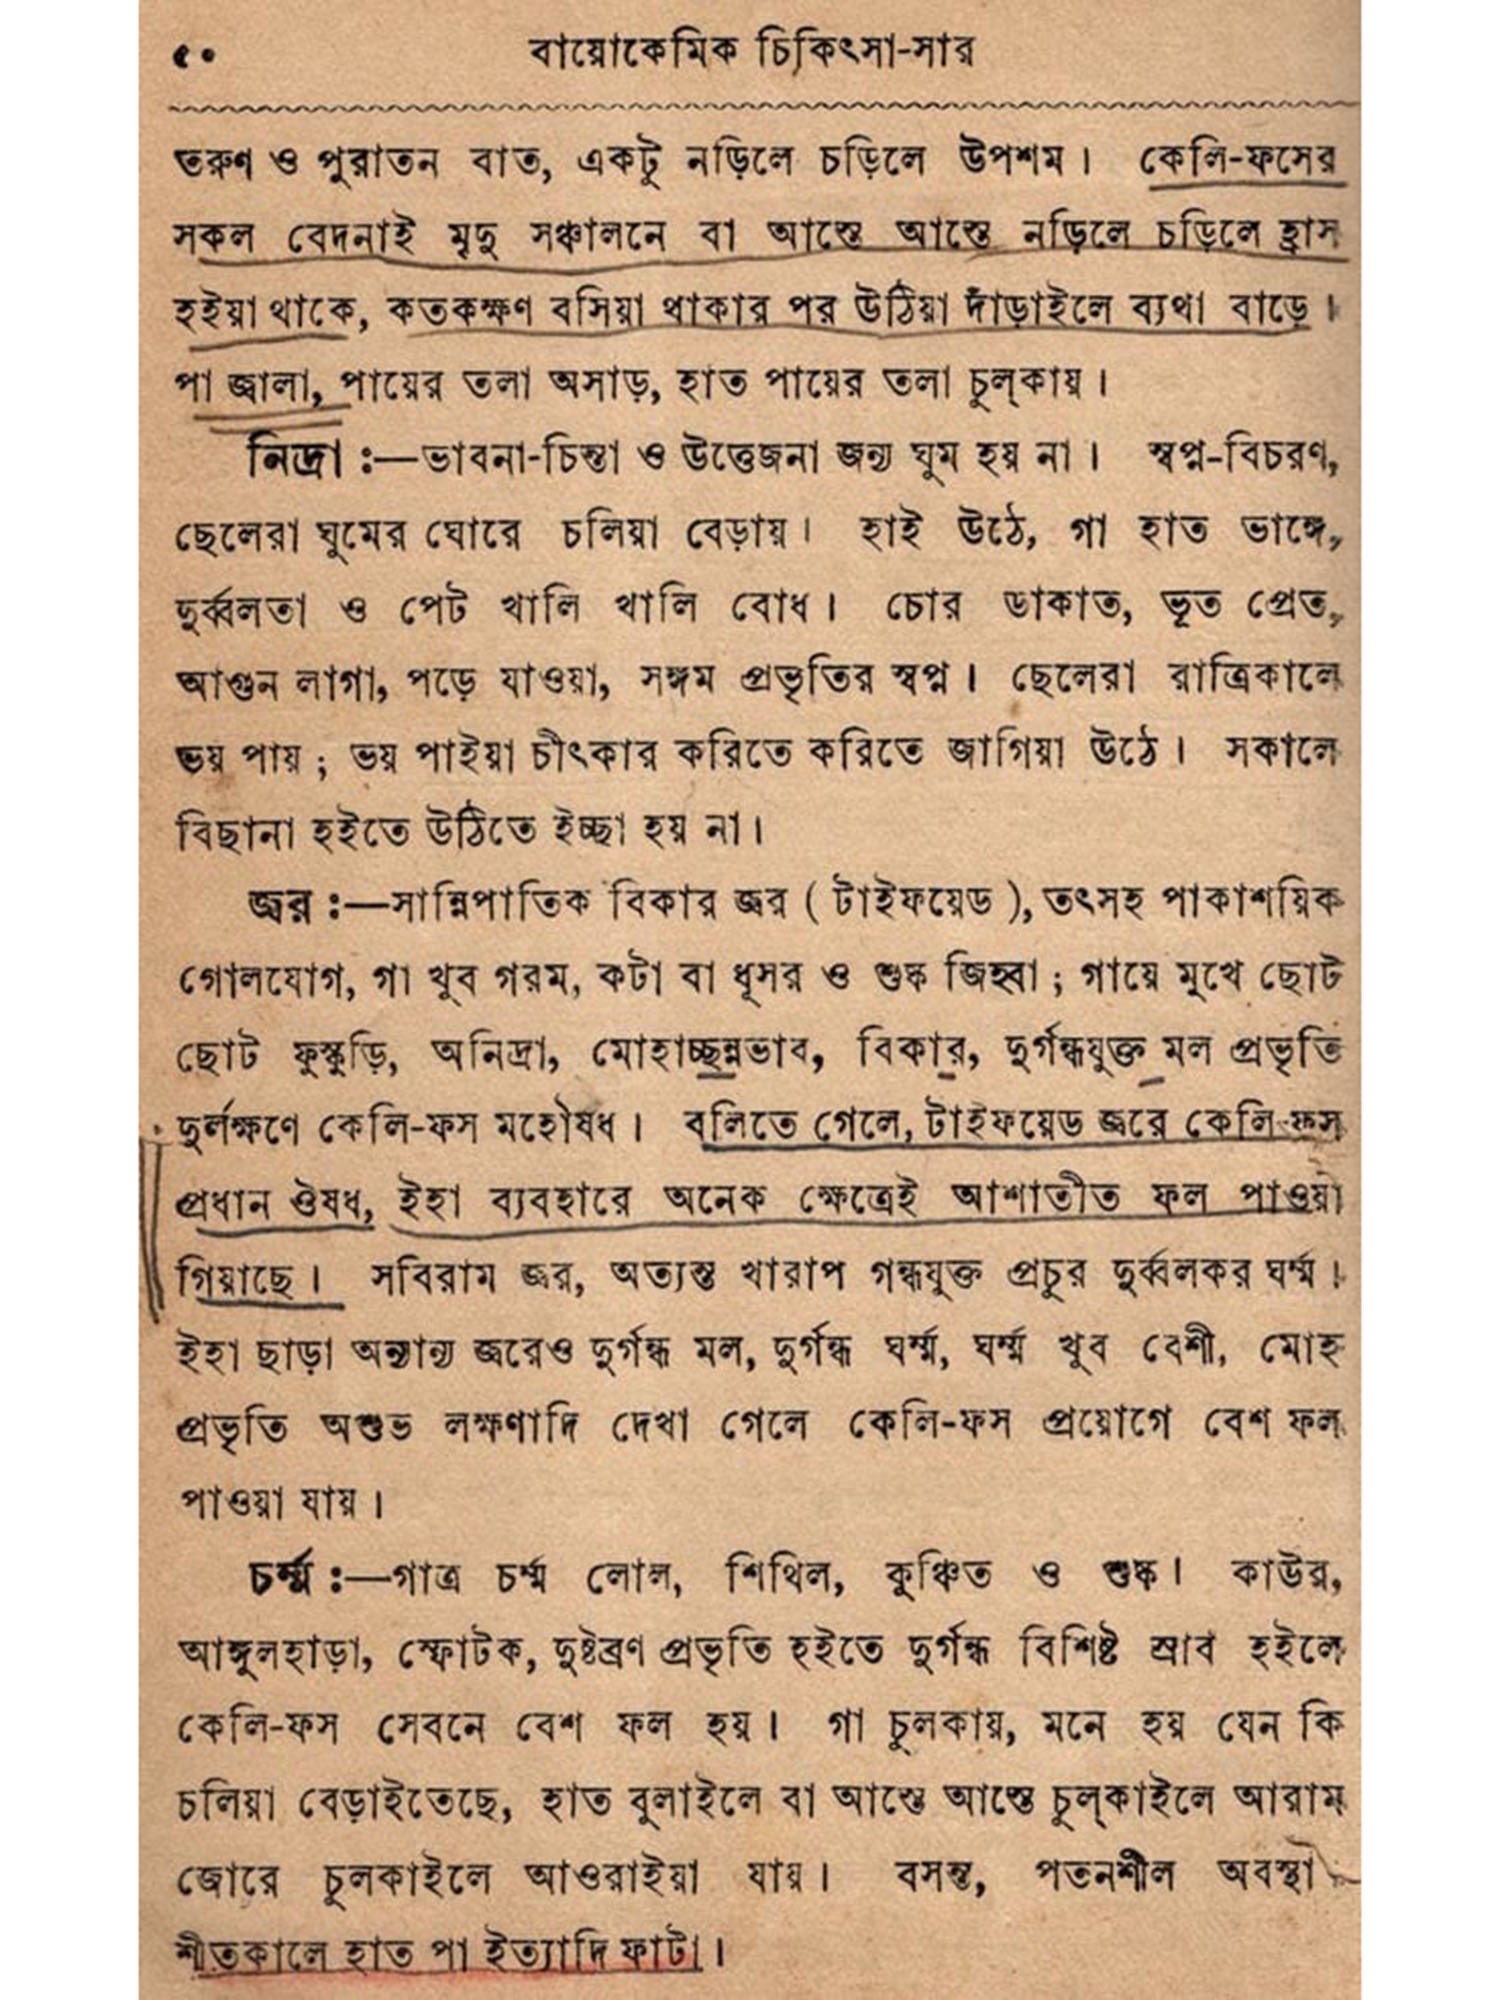 ৫০ বায়োকেমিক চিকিৎসা-সার
তরুণ ও পুরাতন বাত, একটু নড়িলে চড়িলে উপশম। কেলি-ফসের
সকল বেদনাই মৃদু সঞ্চালনে বা আস্তে আস্তে নড়িলে চড়িলে হ্রাস
হইয়া থাকে, কতকক্ষণ বসিয়া থাকার পর উঠিয়া দাঁড়াইলে ব্যথা বাড়ে।
পা জ্বালা, পায়ের তলা অসাড়, হাত পায়ের তলা চুল্‌কায়।
নিদ্রা :—ভাবনা-চিন্তা ও উত্তেজনা জন্য ঘুম হয় না। স্বপ্ন-বিচরণ,
ছেলেরা ঘুমের ঘোরে চলিয়া বেড়ায়। হাই উঠে, গা হাত ভাঙ্গে,
দুর্ব্বলতা ও পেট খালি খালি বোধ। চোর ডাকাত, ভূত প্রেত,
আগুন লাগা, পড়ে যাওয়া, সঙ্গম প্রভৃতির স্বপ্ন। ছেলেরা রাত্রিকালে
ভয় পায় ; ভয় পাইয়া চীৎকার করিতে করিতে জাগিয়া উঠে। সকালে
বিছানা হইতে উঠিতে ইচ্ছা হয় না।
জ্বর :—সান্নিপাতিক বিকার জ্বর ( টাইফয়েড ), তৎসহ পাকাশয়িক
গোলযোগ, গা খুব গরম, কটা বা ধূসর ও শুষ্ক জিহ্বা ; গায়ে মুখে ছোট
ছোট ফুস্কুড়ি, অনিদ্রা, মোহাচ্ছন্নভাব, বিকার, দুর্গন্ধযুক্ত মল প্রভৃতি
দুর্লক্ষণে কেলি-ফস মহৌষধ। বলিতে গেলে, টাইফয়েড জ্বরে কেলি-ফস
প্রধান ঔষধ, ইহা ব্যবহারে অনেক ক্ষেত্রেই আশাতীত ফল পাওয়া
গিয়াছে। সবিরাম জ্বর, অত্যন্ত খারাপ গন্ধযুক্ত প্রচুর দুর্ব্বলকর ঘর্ম্ম।
ইহা ছাড়া অন্যান্য জ্বরেও দুর্গন্ধ মল, দুর্গন্ধ ঘর্ম্ম, ঘর্ম্ম খুব বেশী, মোহ
প্রভৃতি অশুভ লক্ষণাদি দেখা গেলে কেলি-ফস প্রয়োগে বেশ ফল
পাওয়া যায়।
চর্ম্ম :—গাত্র চর্ম্ম লোল, শিথিল, কুঞ্চিত ও শুষ্ক। কাউর,
আঙ্গুলহাড়া, স্ফোটক, দুষ্টব্রণ প্রভৃতি হইতে দুর্গন্ধ বিশিষ্ট স্রাব হইলে
কেলি-ফস সেবনে বেশ ফল হয়। গা চুলকায়, মনে হয় যেন কি
চলিয়া বেড়াইতেছে, হাত বুলাইলে বা আস্তে আস্তে চুল্‌কাইলে আরাম
জোরে চুলকাইলে আওরাইয়া যায়। বসন্ত, পতনশীল অবস্থা
শীতকালে হাত পা ইত্যাদি ফাটা।